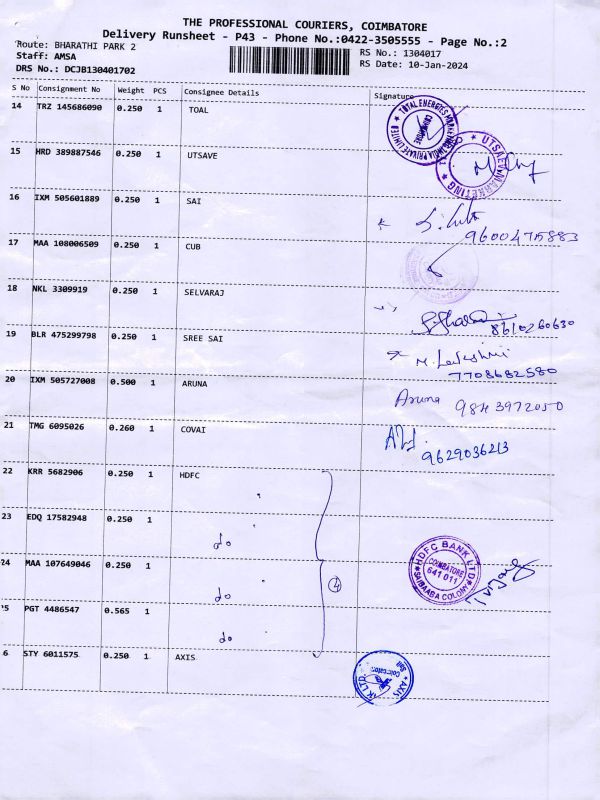 THE PROFESSIONAL COURIERS, COIMBATORE
Delivery Runsheet - P43 - Phone No.:0422-3505555 - Page No.:2
Route: BHARATHI PARK 2
RS No.: 1304017
Staff: AMSA
RS Date: 10-Jan-2024
DRS No.: DCJB130401702
S No Consignment No Weight PCS Consignee Details Signature
14 TRZ 145686090 0.250 1 TOAL
TOTAL ENERGIES MARKETING INDIA PRIVATE LIMITED
COIMBATORE
15 HRD 389887546 0.250 1 UTSAVE
UTSAV MARKETING
16 IXM 505601889 0.250 1 SAI
17 MAA 108006509 0.250 1 CUB
18 NKL 3309919 0.250 1 SELVARAJ
8610260630
19 BLR 475299798 0.250 1 SREE SAI
M. Lakshmi
7708682580
20 IXM 505727008 0.500 1 ARUNA Aruna
21 TMG 6095026 0.260 1 COVAI
9629036213
22 KRR 5682906 0.250 1 HDFC
23 EDQ 17582948 0.250 1 do
24 MAA 107649046 0.250 1 do 4
HDFC BANK LTD
COIMBATORE
641 011
SAIBAABA COLONY
5 PGT 4486547 0.565 1 do
6 STY 6011575 0.250 1 AXIS
AXIS